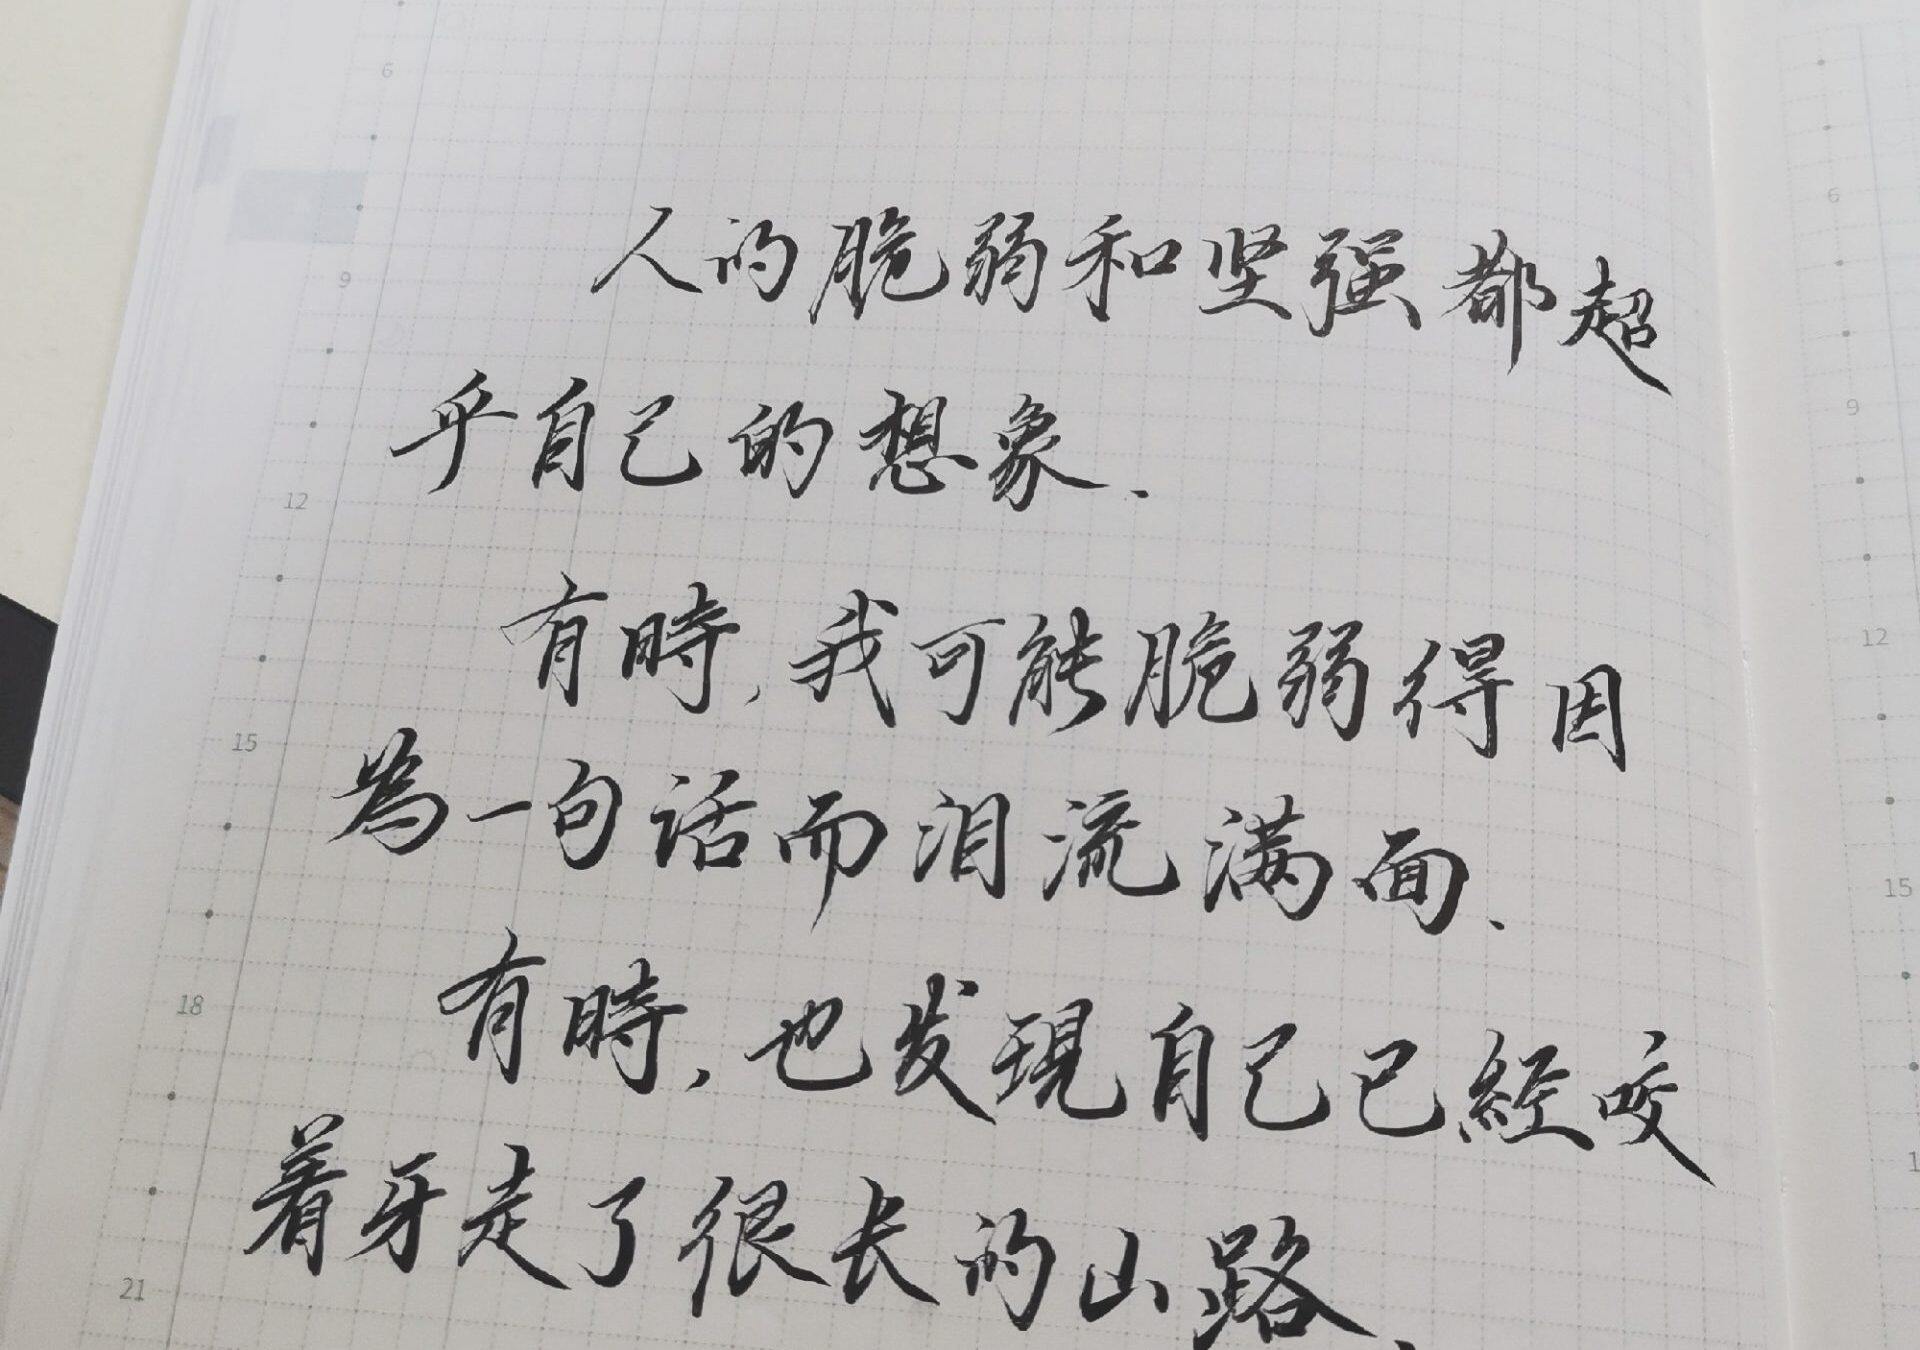 人的脆弱和坚强都超
乎自己的想象、
有時,我可能脆弱得因
為一句话而泪流满面、
有時,也发現自己已經咬
着牙走了很长的山路、
6
9
12
15
18
21
6
9
12
15